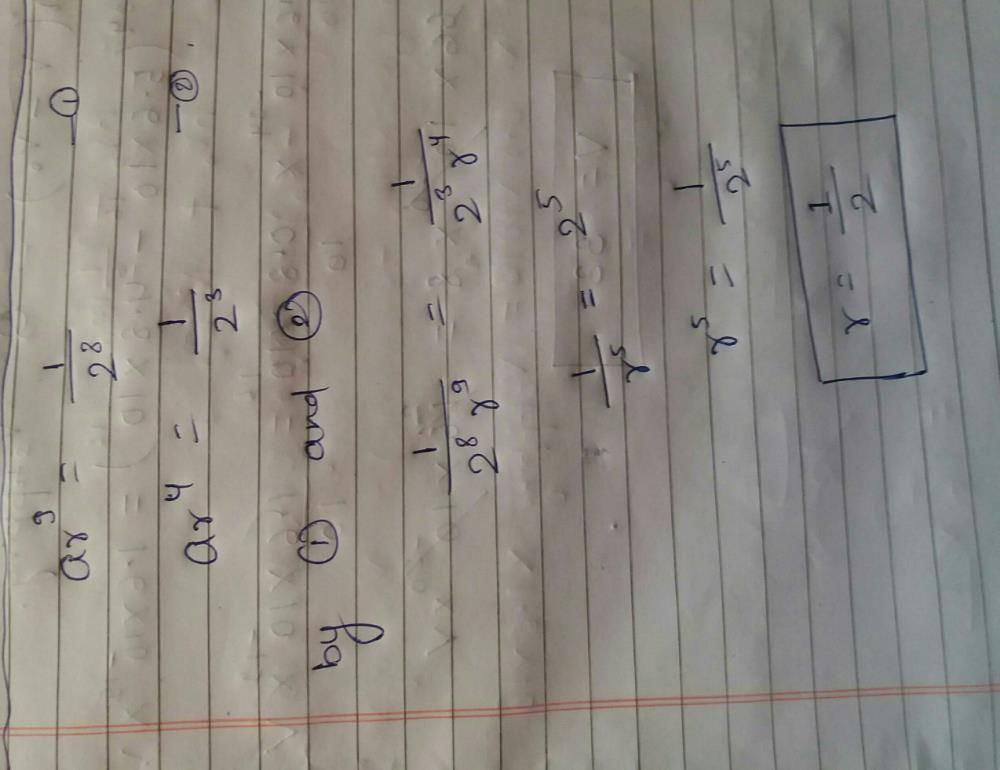 ar⁹ = 1/2⁸ —①
ar⁴ = 1/2³ —②.
by ① and ②
1/2⁸r⁹ = 1/2³r⁴
1/r⁵ = 2⁵
r⁵ = 1/2⁵
r = 1/2